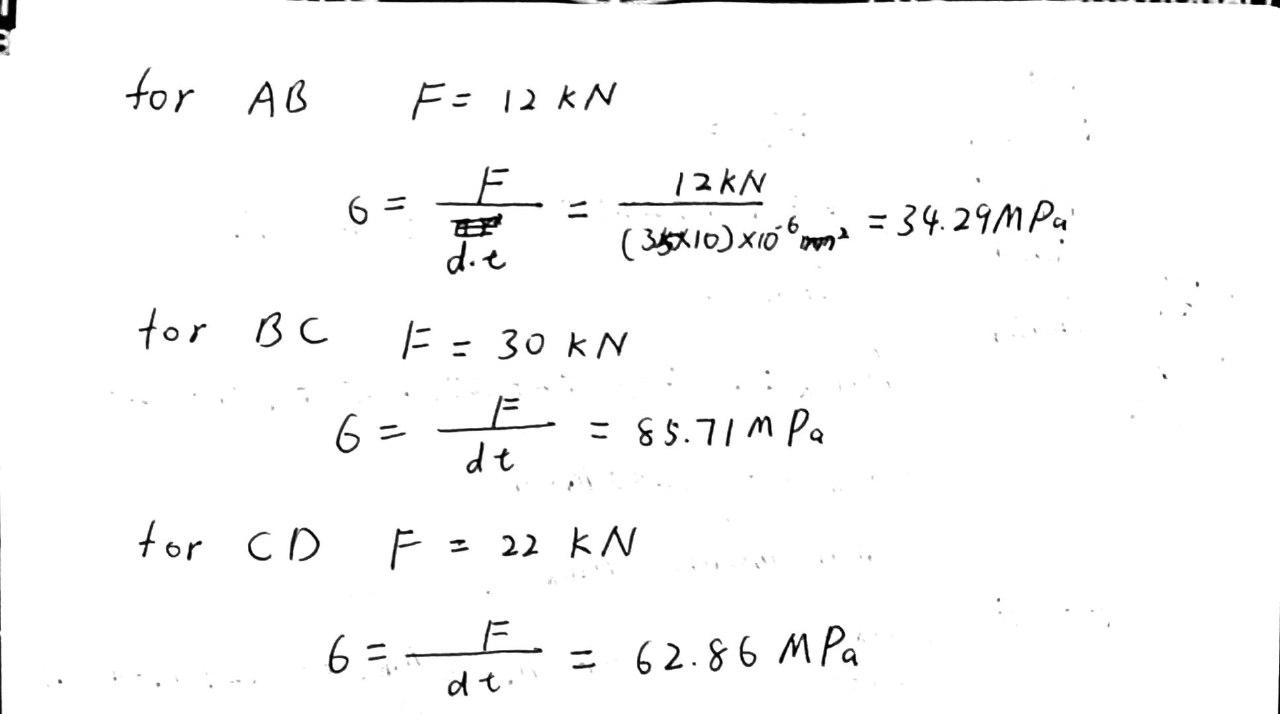 for AB F = 12 kN
6 = F / d.t = 12kN / (35x10)x10^-6 mm² = 34.29MPa
for BC F = 30 kN
6 = F / dt = 85.71 MPa
for CD F = 22 kN
6 = F / dt. = 62.86 MPa